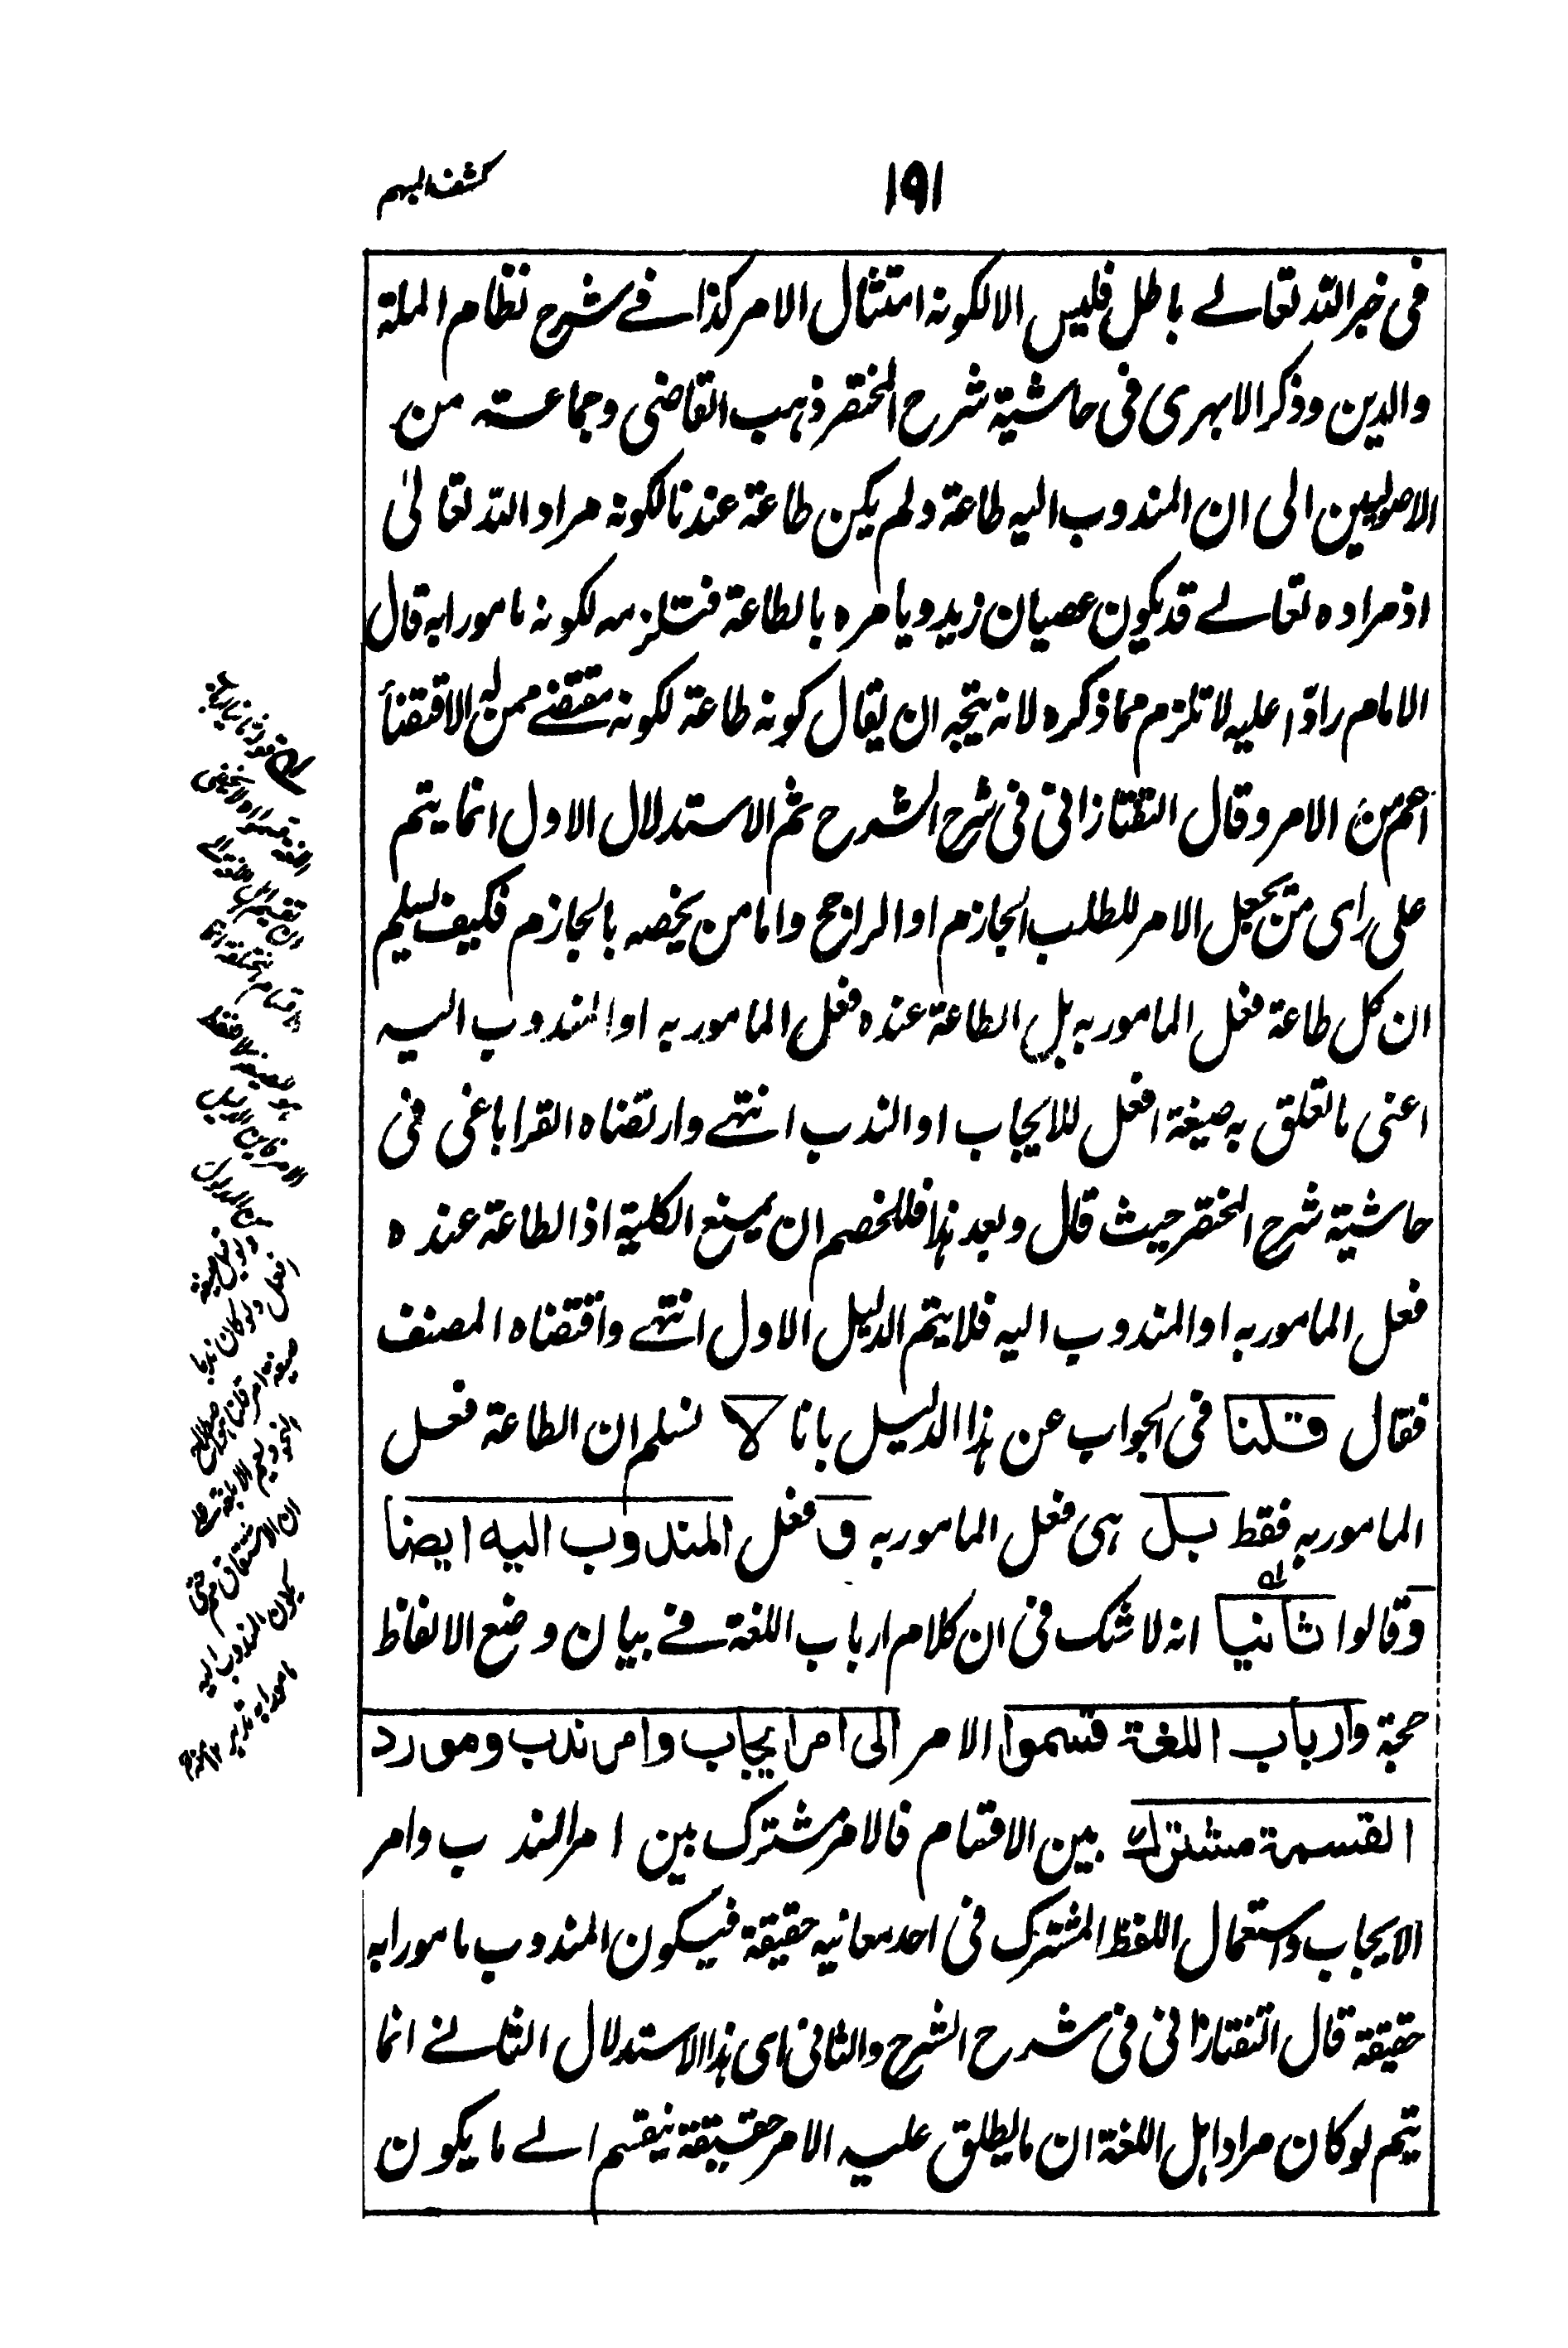 ١٩١
كشف المبهم
فى خبر الله تعالے باطل فليس الا لكونه امتثال الامر كذا فے شرح نظام الملة
والدين وذكر الابهرى فى حاشية شرح المختصر ذهب القاضى وجماعة من
الاصوليين الى ان المندوب اليه طاعة ولم يكن طاعة عندنا لكونه مراد الله تعالىٰ
اذ مراده تعالے قد يكون عصيان زيد ويامره بالطاعة فتستلزمه لكونه مامورا به قال
الامام رادّا عليه لا تلزم مما ذكره لانه يتجه ان يقال كونه طاعة لكونه مقتضے ممن له الاقتضاء
اعم من الامر وقال التفتازانى فى شرح الشرح ثم الاستدلال الاول انما يتم
على راى من يجعل الامر للطلب الجازم او الراجح واما من يخصه بالجازم فكيف يسلم
ان كل طاعة فعل المامور به بل الطاعة عنده فعل المامور به او المندوب اليه
اعنى ما تعلق به صيغة افعل للايجاب او الندب انتهے وارتضاه القراباغى فى
حاشية شرح المختصر حيث قال وبعد هذا فللخصم ان يمنع الكلية اذ الطاعة عنده
فعل المامور به او المندوب اليه فلا يتم الدليل الاول انتهے واقتضاه المصنف
فقال قلنا فى الجواب عن هذا الدليل بانا لا نسلم ان الطاعة فعل
المامور به فقط بل هى فعل المامور به و فعل المندوب اليه ايضا
وقالوا ثانيا انه لا شك فى ان كلام ارباب اللغة فے بيان وضع الالفاظ
حجة وارباب اللغة قسموا الامر الى امر ايجاب وامر ندب ومورد
القسمة مشترك بين الاقسام فالامر مشترك بين امر الندب وامر
الايجاب واستعمال اللفظ المشترك فى احد معانيه حقيقة فيكون المندوب مامورا به
حقيقة قال التفتازانى فى شرح الشرح والثانى اى هذا الاستدلال الثانے انما
يتم لو كان مراد اهل اللغة ان ما يطلق عليه الامر حقيقة ينقسم الے ما يكون
افعل ولو كان ندبا
ان الاستعمال
يكون المندوب اليه
مامورا به تدبر ١٢ منه